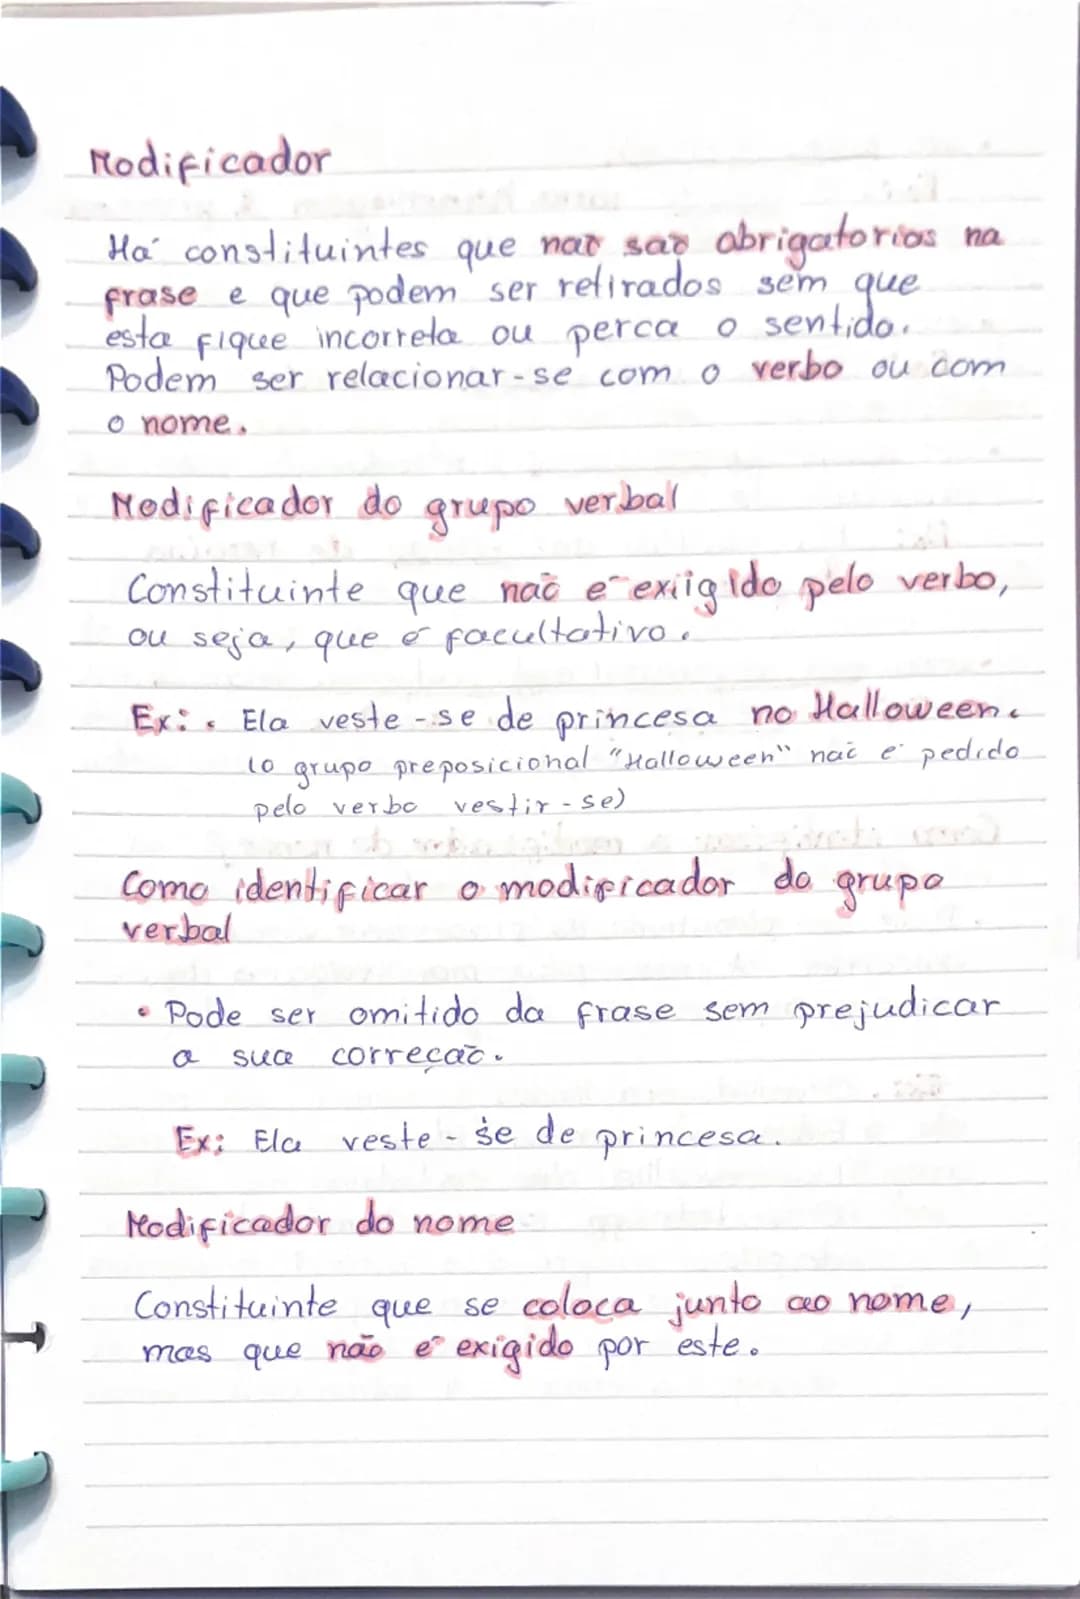 Modificador
Há constituintes que não são obrigatorios na
frase e que podem ser retirados sem que
esta fique incorreta ou perca o sentido.
Podem ser relacionar-se com o verbo ou com
o nome.
Modificador do grupo verbal
Constituinte que não é exiigido pelo verbo,
ou seja, que é facultativo.
Ex: • Ela veste-se de princesa no Halloween.
(o grupo preposicional "Halloween" não é pedido
pelo verbo vestir-se)
Como identificar o modificador do grupo
verbal
• Pode ser omitido da frase sem prejudicar
a sua correção.
Ex: Ela veste-se de princesa.
Modificador do nome
Constituinte que se coloca junto ao nome,
mas que não é exigido por este.